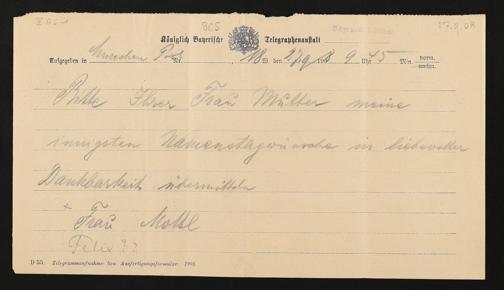 805
27.9.08
Königlich Bayerische Telegraphenanstalt
Aufgegeben in München Nr. den 27/9 9 Uhr 45 Min. vorm. nachm.
Bitte Ihrer Frau Mutter meine
innigsten Namenstagwünsche in liebevoller
Dankbarkeit übermitteln
Frau Mottl
Felix??
D 55. Telegrammaufnahme- bzw. Ausfertigungsformular. 1908.